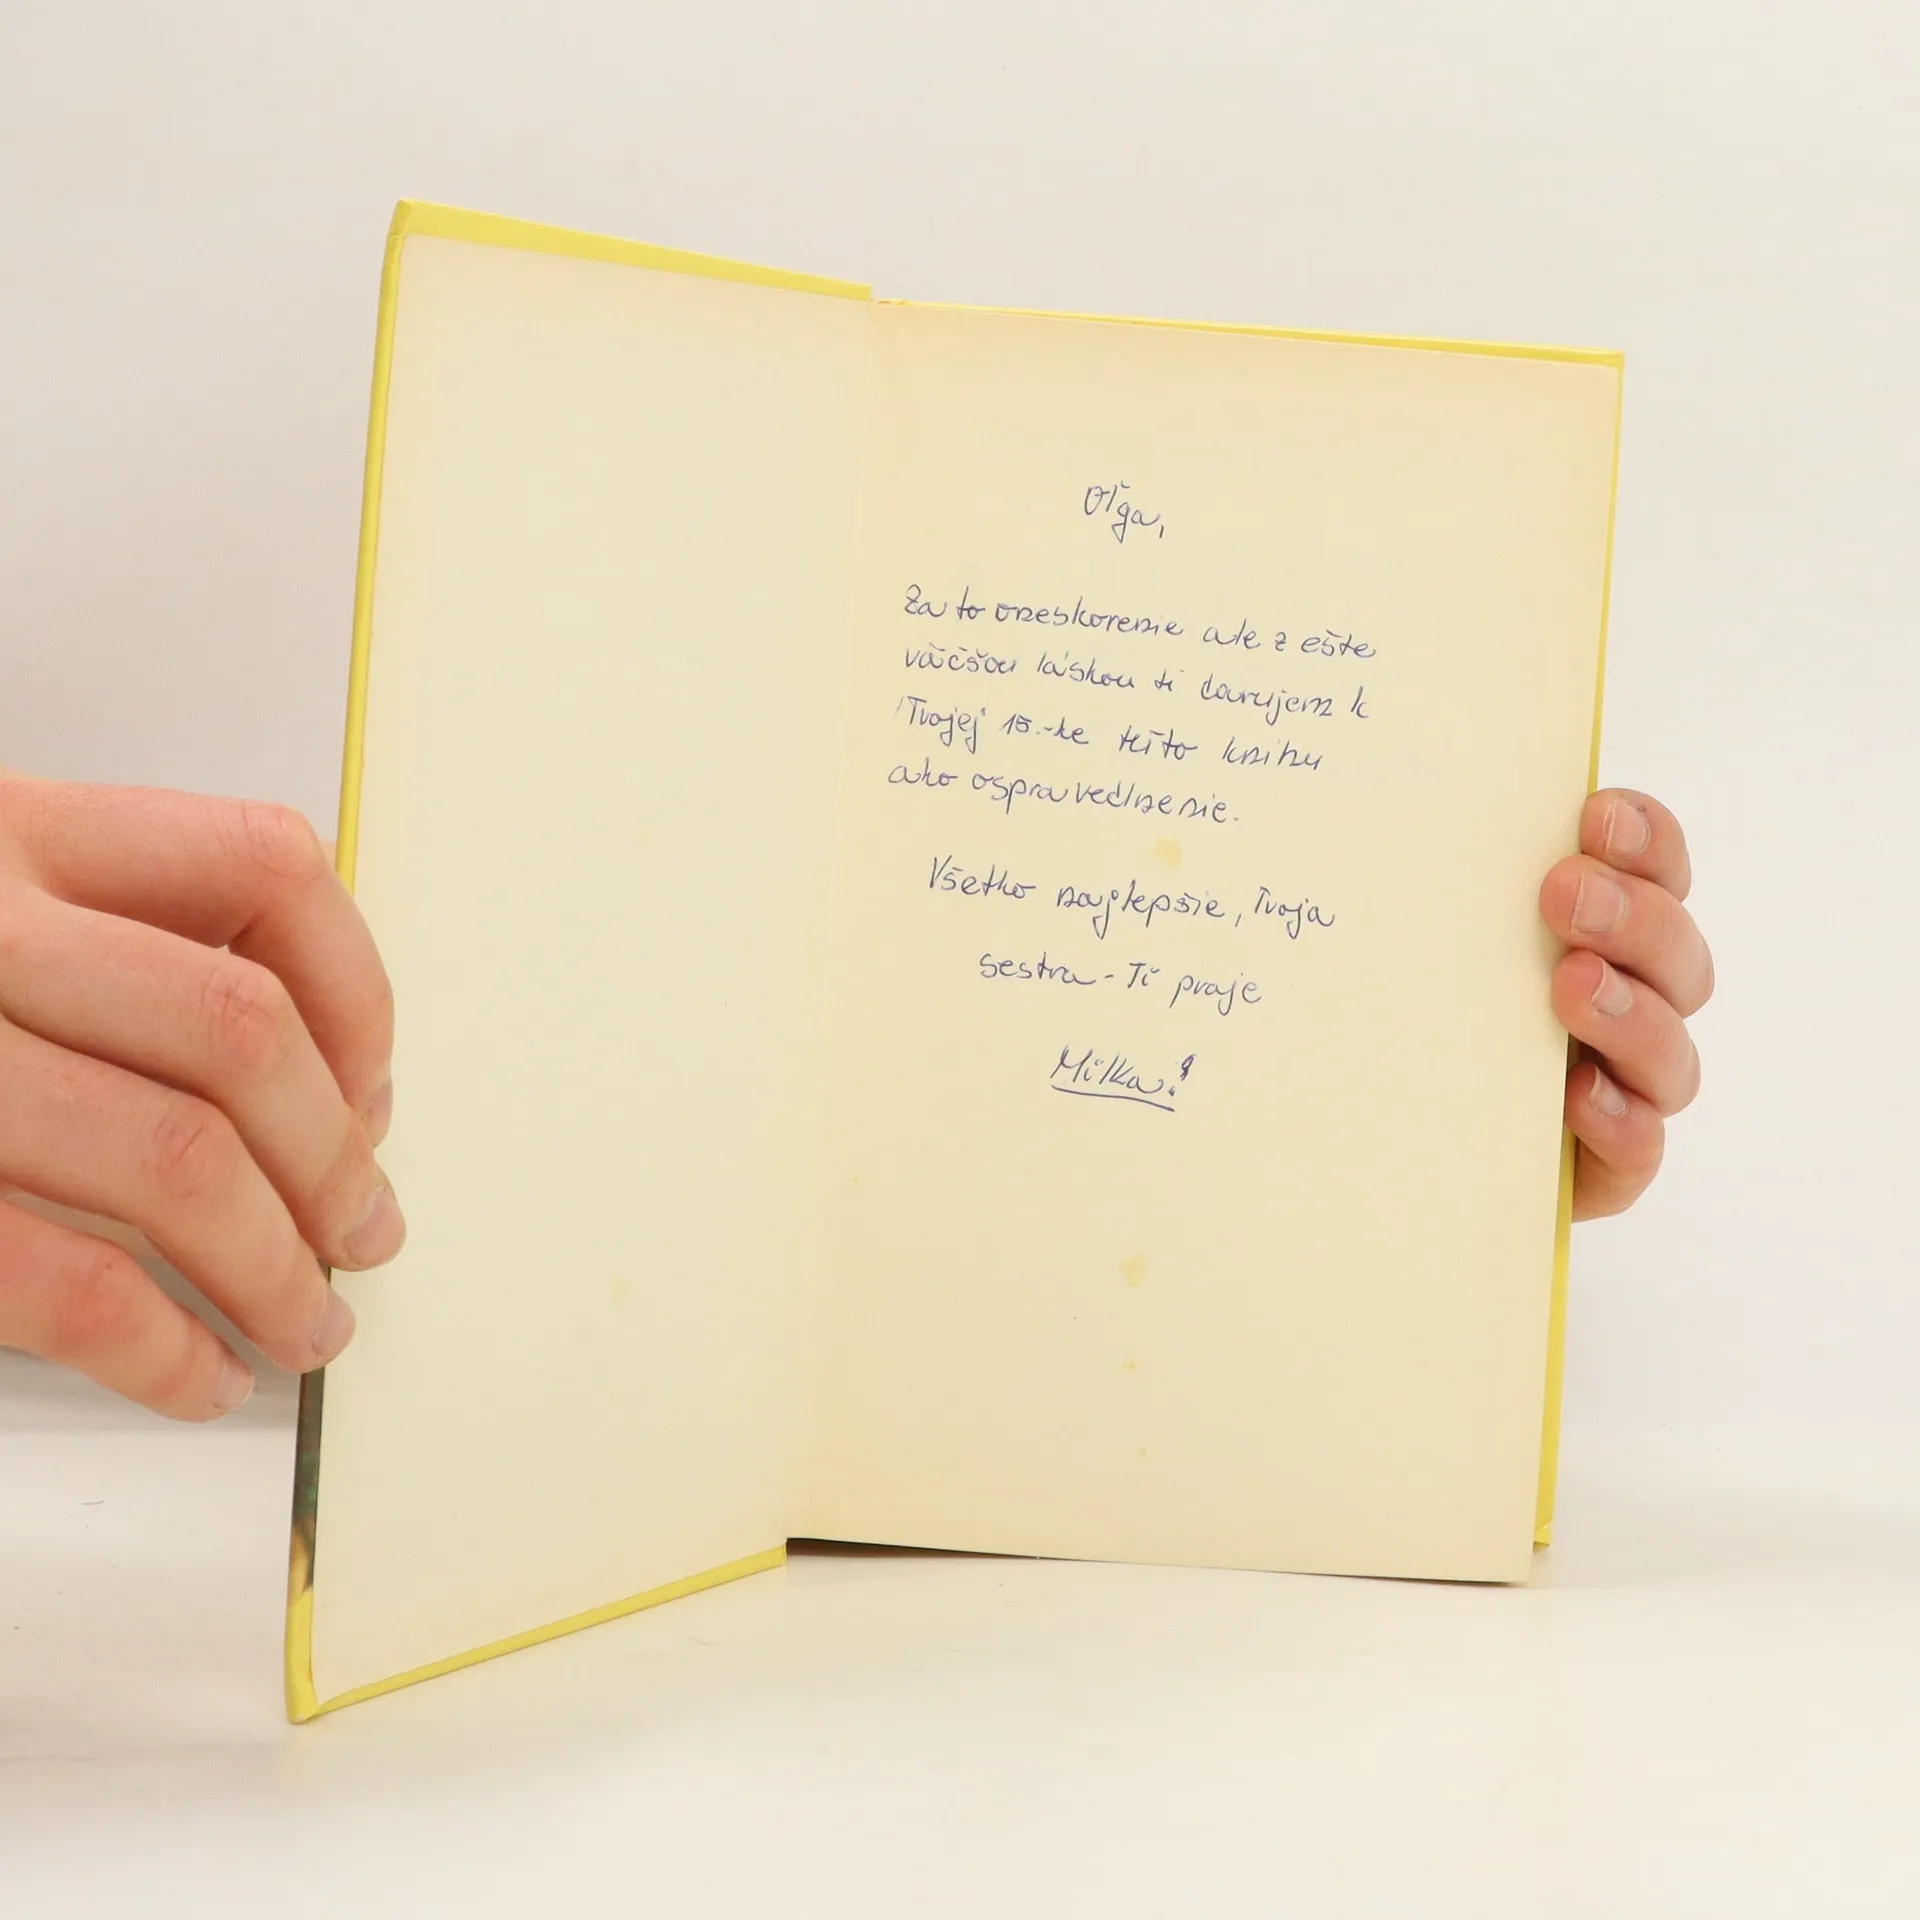 Oľga,
Za to oneskorenie ale z ešte
väčšou láskou ti darujem k
Tvojej 15.-ke túto knihu
ako ospravedlnenie.
Všetko najlepšie, Tvoja
sestra - Ti praje
Milka!